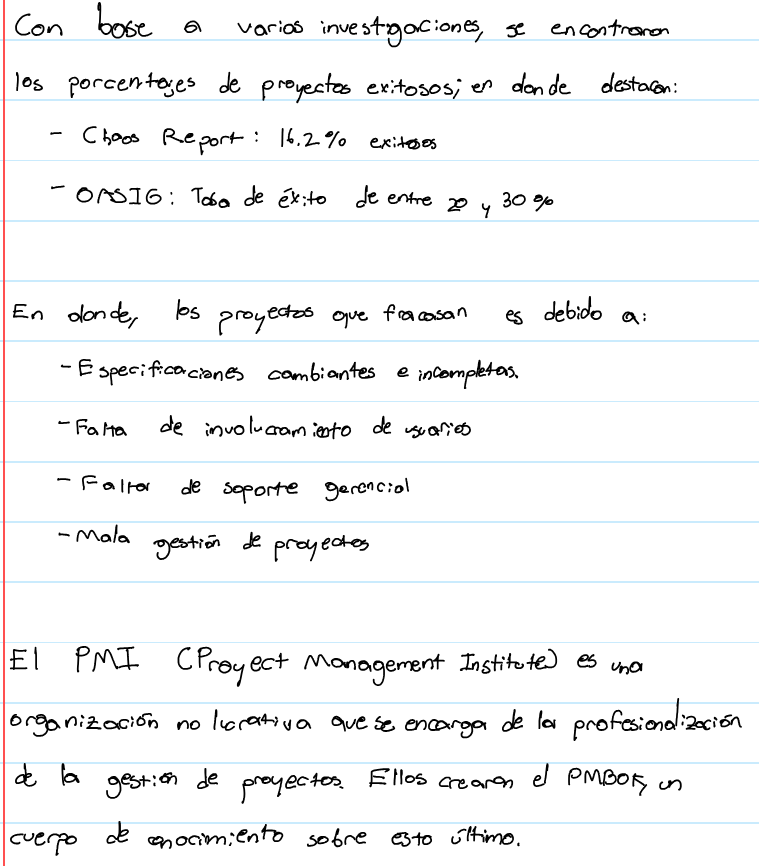 Con base a varias investigaciones, se encontraron
los porcentajes de proyectos exitosos; en donde destacan:
- Chaos Report: 16.2% exitosos
- OASIG: Tasa de éxito de entre 20 y 30%
En donde, los proyectos que fracasan es debido a:
- Especificaciones cambiantes e incompletas.
- Falta de involucramiento de usuarios
- Falta de soporte gerencial
- Mala gestión de proyectos
El PMI (Proyect Management Institute) es una
organización no lucrativa que se encarga de la profesionalización
de la gestión de proyectos. Ellos crearon el PMBOK, un
cuerpo de conocimiento sobre esto último.